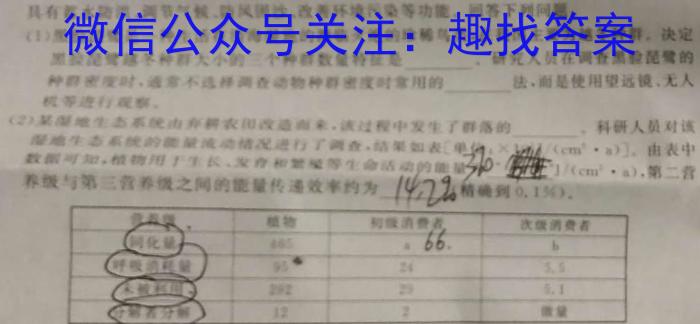 具有蓄水防洪、调节气候、防风固沙、改善环境污染等功能。回答下列问题：
微信公众号关注：趣找答案
决定
黑脸琵鹭越冬种群大小的三个种群数量特征是______。研究人员在调查黑脸琵鹭的
种群密度时，通常不选择调查动物种群密度时常用的______法，而是使用望远镜、无人
机等进行观察。
(2)某湿地生态系统由弃耕农田改造而来，该过程中发生了群落的______。科研人员对该
湿地生态系统的能量流动情况进行了调查，结果如表[单位：×1 J/(cm²·a)]。由表中
数据可知，植物用于生长、发育和繁殖等生命活动的能量 370 J/(cm²·a)，第二营
养级与第三营养级之间的能量传递效率约为 14.2% (精确到0.1%)。
营养级 植物 初级消费者 次级消费者
同化量 465 a 66. b
呼吸消耗量 95 24 5.5
未被利用 292 29 5.1
分解者分解 12 2 微量